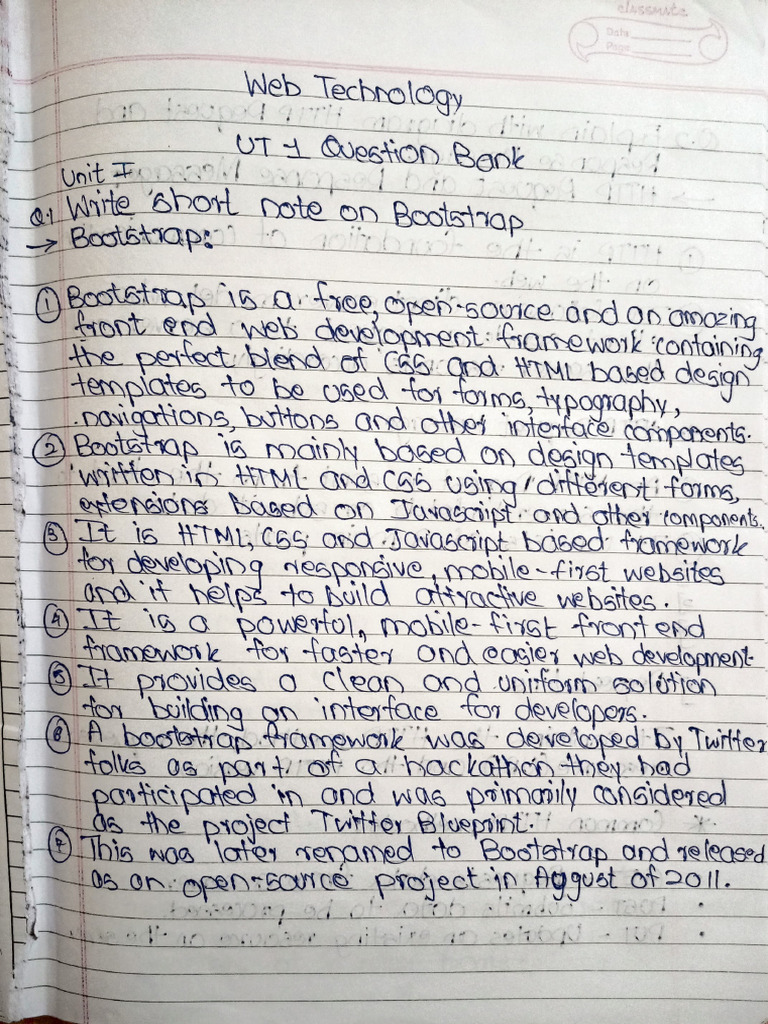 classmate
Date
Page
Web Technology
UT-1 Question Bank
Unit I
Q.1 Write short note on Bootstrap
→ Bootstrap:
① Bootstrap is a free, open-source and an amazing
front end web development framework containing
the perfect blend of CSS and HTML based design
templates to be used for forms, typography,
navigations, buttons and other interface components.
② Bootstrap is mainly based on design templates
written in HTML and CSS using different forms,
extensions based on Javascript and other components.
③ It is HTML, CSS and Javascript based framework
for developing responsive, mobile-first websites
and it helps to build attractive websites.
④ It is a powerful, mobile-first front end
framework for faster and easier web development.
⑤ It provides a clean and uniform solution
for building an interface for developers.
⑥ A bootstrap framework was developed by Twitter
folks as part of a hackathon they had
participated in and was primarily considered
as the project Twitter Blueprint.
⑦ This was later renamed to Bootstrap and released
as an open-source project in August of 2011.